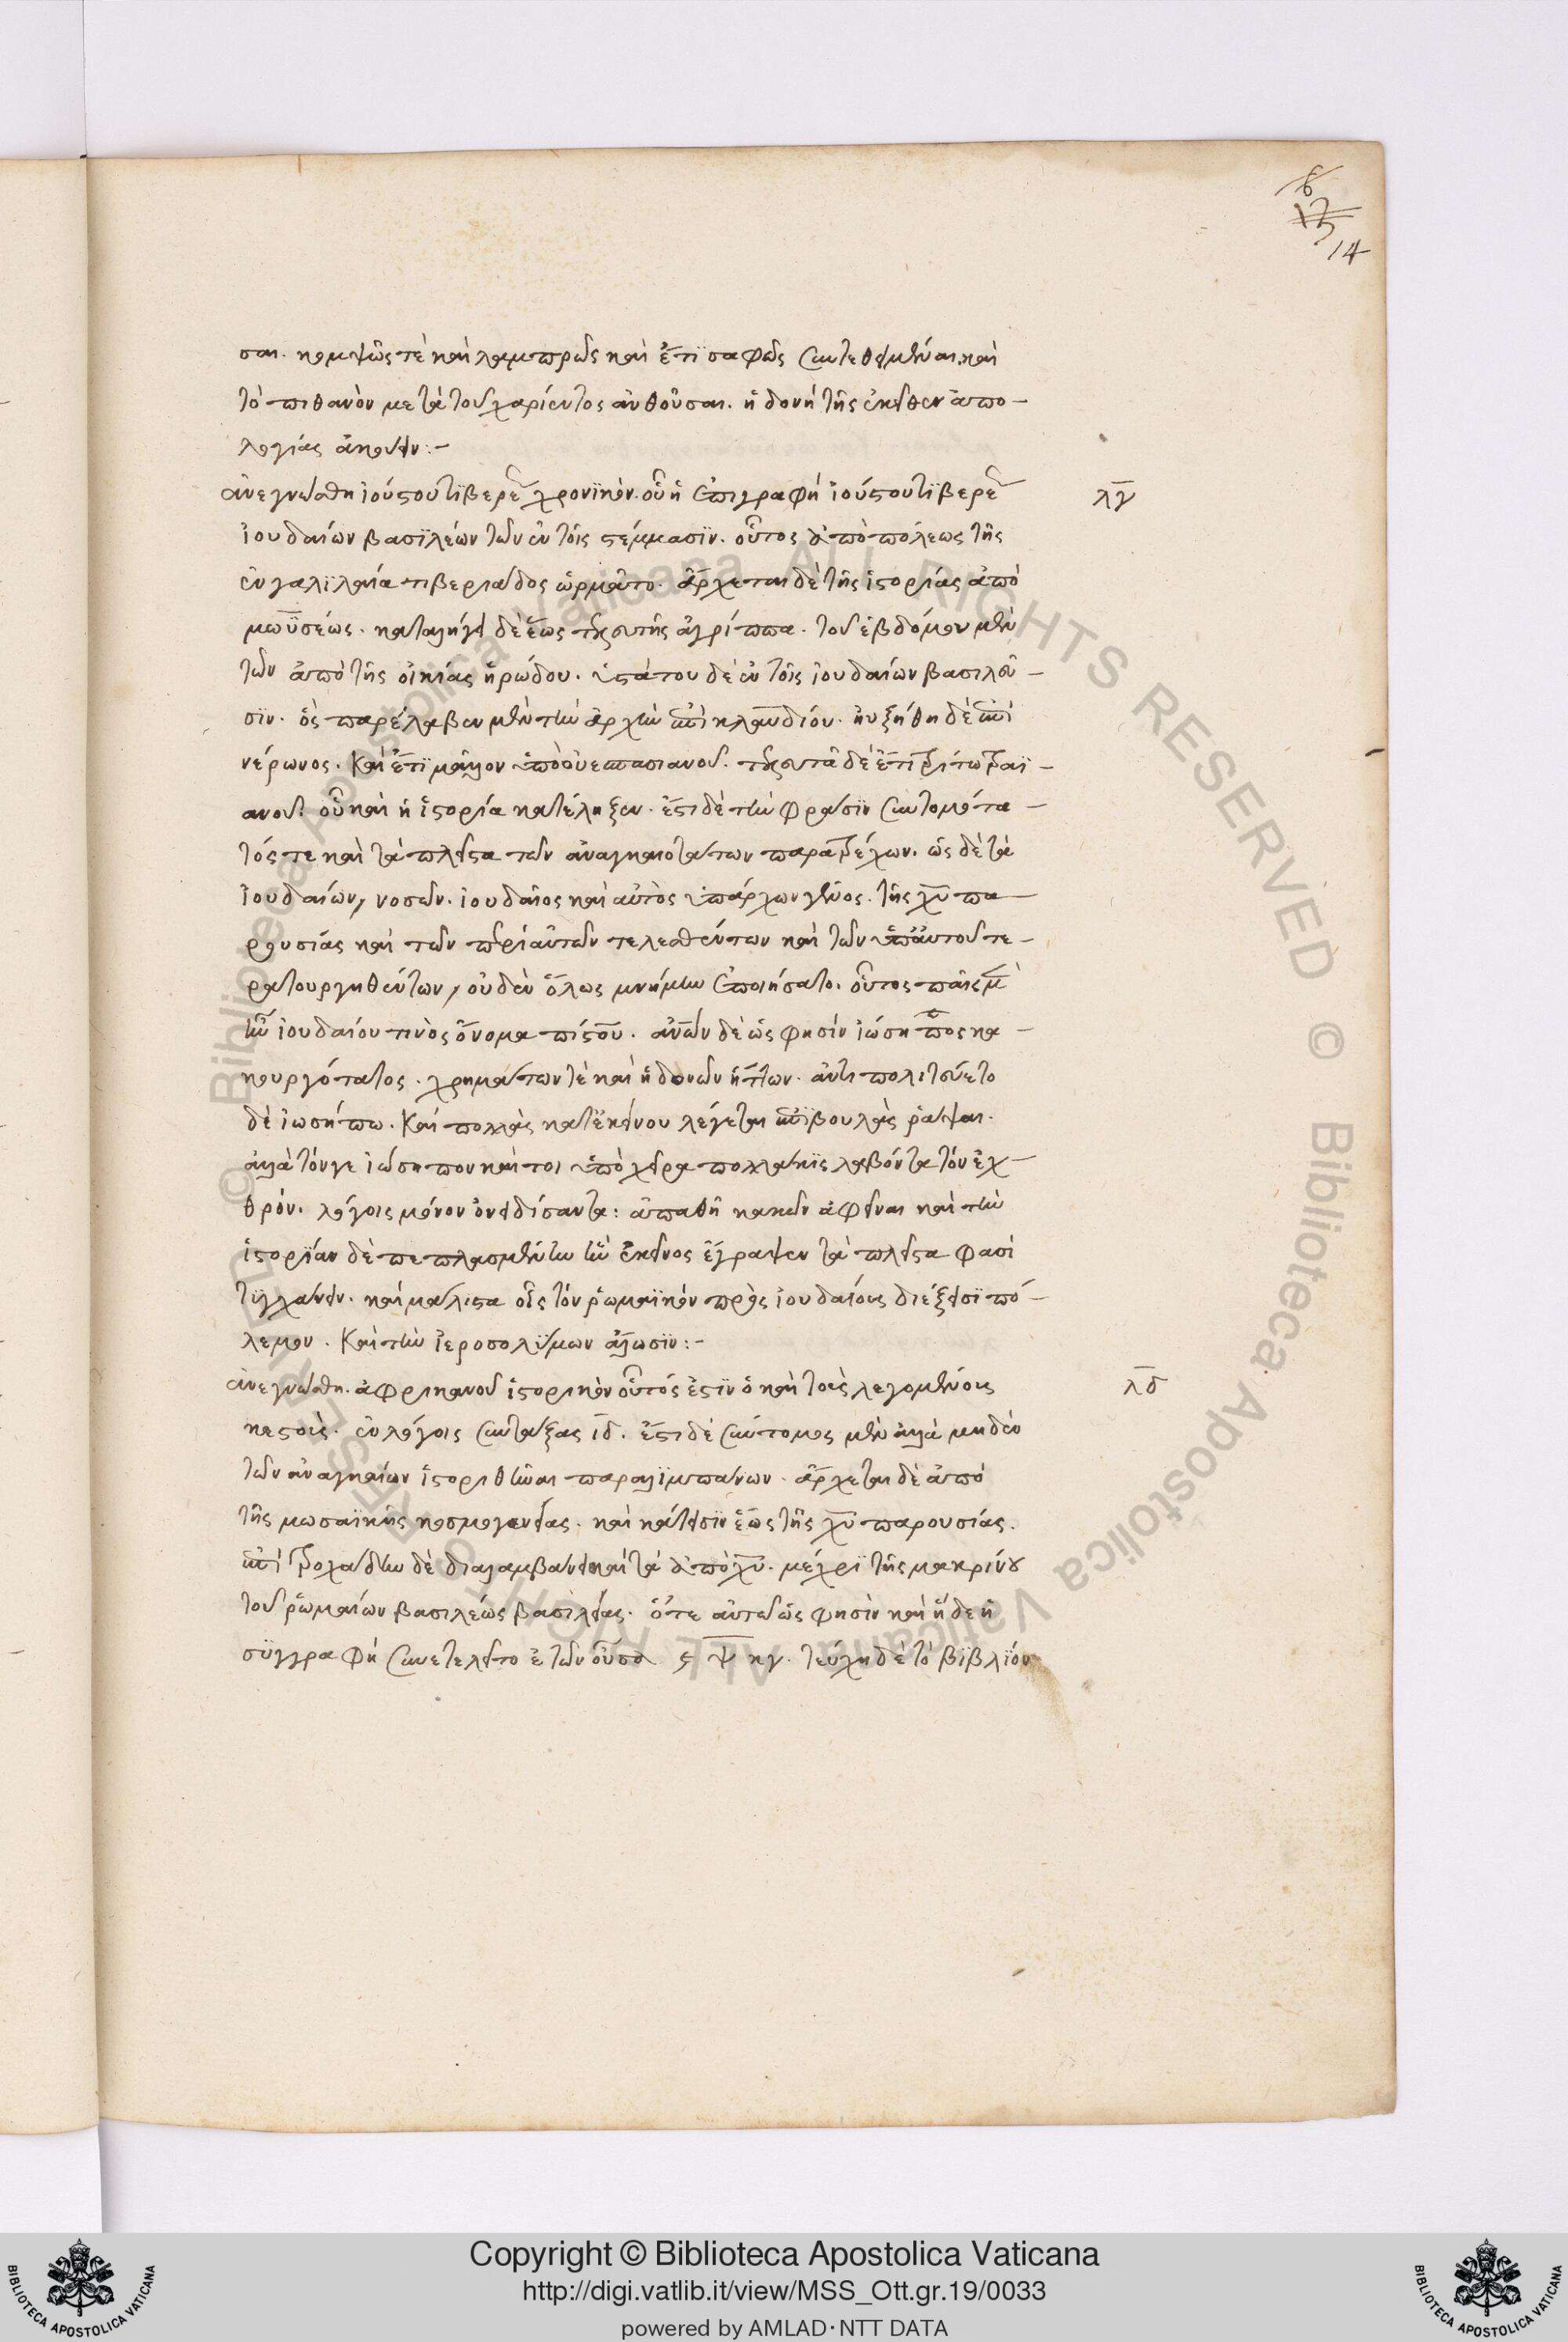 8
13
14
σαι. κομψῶς τὲ καὶ λαμπρῶς καὶ ἔτϊ σαφῶς συντεθειμέναι. καὶ
τὸ πιθανὸν μετὰ τοῦ χαρίεντος ἀνθοῦσαι. ἡδονὴ τῆς ἐκεῖθεν ἀπο-
λογίας ἀκούειν:-
ἀνεγνώσθη ἰούστου τϊβερε χρονϊκὸν. οὗ ἡ ἐπιγραφὴ ἰούστου τϊβερε
ἰουδαίων βασϊλέων τῶν ἐν τοῖς στέμμασϊν. οὗτος ἀπὸ πόλεως τῆς
ἐν γαλϊλαία τιβεριάδος ὡρμᾶτο. ἄρχεται δὲ τῆς ἱστορίας ἀπὸ
μωϋσέως. καταλήγει δὲ ἕως τελευτῆς ἀγρίππα. τοῦ ἑβδόμου μὲν
τῶν ἀπὸ τῆς οἰκίας ἡρώδου. ὑστάτου δὲ ἐν τοῖς ἰουδαίων βασιλεῦ-
σϊν. ὃς παρέλαβεν μὲν τὴν ἀρχὴν ἐπὶ κλαυδίου. ηὐξήθη δὲ ἐπὶ
νέρωνος. καὶ ἔτϊ μᾶλλον ὑπὸ οὐεσπασιανοῦ. τελευτᾶ δὲ ἔτει τρίτω τραϊ-
ανοῦ. οὗ καὶ ἡ ἱστορία κατέληξεν. ἔστι δὲ τὴν φράσϊν συντομώτα-
τός τε καὶ τὰ πλεῖστα τῶν ἀναγκαιοτάτων παρατρέχων. ὡς δὲ τὰ
ἰουδαίων, νοσῶν. ἰουδαῖος καὶ αὐτὸς ὑπάρχων γένος. τῆς χυ πα-
ρουσίας καὶ τῶν περὶ αὐτὸν τελεσθέντων καὶ τῶν ὑπ' αὐτοῦ τε-
ρατουργηθέντων, οὐδὲν ὅλως μνήμην ἐποιήσατο. οὗτος παῖς μὲν
ἦν ἰουδαίου τινὸς ὄνομα πίστου. ἀνων δὲ ὥς φησίν ἰώσηπος κα-
κουργότατος. χρημάτων τὲ καὶ ἡδονῶν ἥττων. ἀντιπολιτεύετο
δὲ ἰωσήπω. καὶ πολλὰς κατ' ἐκείνου λέγεται ἐπϊβουλὰς ῥάψαι.
ἀλλὰ τόνγε ἰώσηπον καίτοι ὑπὸ χεῖρα πολλάκϊς λαβόντα τὸν ἐχ-
θρόν. λόγοις μόνον ὀνειδίσαντα: ἀπαθῆ κακῶν ἀφεῖναι καὶ τὴν
ἱστορϊαν δὲ πεπλασμένην ἣν ἐκεῖνος ἔγραψεν τὰ πλεῖστα φασὶ
τϋγχάνειν. καὶ μάλιστα οἷς τὸν ῥωμαϊκὸν πρὸς ἰουδαίους διέξεισϊ πό-
λεμον. καὶ τὴν ἱεροσολϋμων ἅλωσϊν:-
ἀνεγνώσθη. ἀφρικανοῦ ἱστορικὸν οὗτός ἐστϊν ὁ καὶ τοὺς λεγομένους
κεστοὺς. ἐν λόγοις συντάξας ιδ. ἔστι δὲ σύντομος μὲν ἀλλὰ μηδὲν
τῶν ἀναγκαίων ἱστορηθῆναι παραλϊμπάνων. ἄρχεται δὲ ἀπὸ
τῆς μωσαϊκῆς κοσμογενείας. καὶ κάτεισϊν ἕως τῆς χυ παρουσίας.
ἐπιτροχάδην δὲ διαλαμβάνει καὶ τὰ ἀπὸ χυ. μέχρϊ τῆς μακρίνου
τοῦ ῥωμαίων βασιλέως βασιλείας. ὅτε αὐτῷ ὥς φησὶν καὶ ἥδε ἡ
σϋγγραφὴ συνετελεῖτο ἐτῶν οὖσα ϛψκγ. τεύχη δὲ τὸ βϊβλϊόν
λγ
λδ
Copyright © Biblioteca Apostolica Vaticana
http://digi.vatlib.it/view/MSS_Ott.gr.19/0033
powered by AMLAD·NTT DATA
BIBLIOTECA APOSTOLICA VATICANA
BIBLIOTECA APOSTOLICA VATICANA
© Biblioteca Apostolica Vaticana ALL RIGHTS RESERVED
© Biblioteca Apostolica Vaticana ALL RIGHTS RESERVED